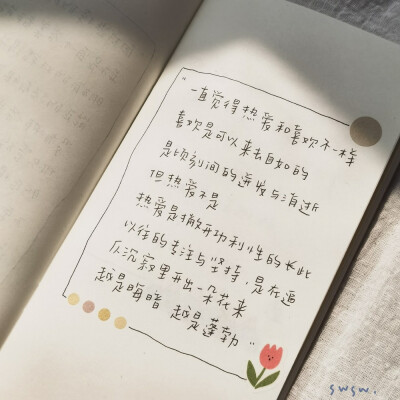 "一直觉得热爱和喜欢不一样
喜欢是可以来去自如的
是顷刻间的迸发与消逝
但热爱不是
热爱是撇开功利性的长此
以往的专注与坚持，是在追
从沉寂里开出一朵花来
越是晦暗 越是蓬勃"
swsw.